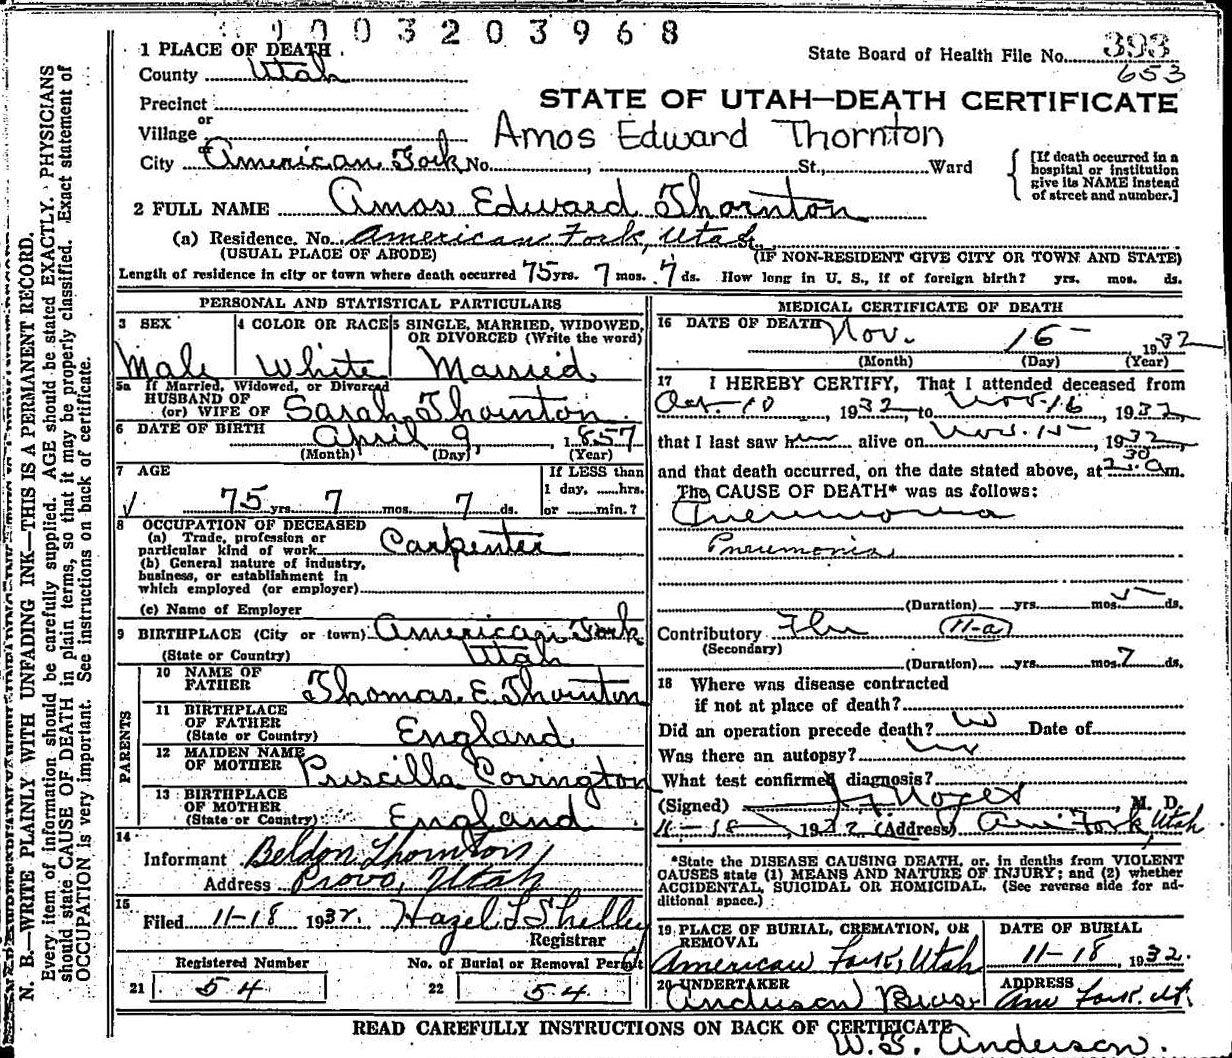 1 0 0 3 2 0 3 9 6 8
1 PLACE OF DEATH
County Utah
State Board of Health File No. 393
653
Precinct
or
Village
STATE OF UTAH—DEATH CERTIFICATE
Amos Edward Thornton
City American Fork No. St., Ward
[If death occurred in a hospital or institution give its NAME instead of street and number.]
2 FULL NAME Amos Edward Thornton
(a) Residence. No. American Fork, Utah
(USUAL PLACE OF ABODE) (IF NON-RESIDENT GIVE CITY OR TOWN AND STATE)
Length of residence in city or town where death occurred 75 yrs. 7 mos. 7 ds. How long in U. S., if of foreign birth? yrs. mos. ds.
PERSONAL AND STATISTICAL PARTICULARS
3 SEX 4 COLOR OR RACE 5 SINGLE, MARRIED, WIDOWED, OR DIVORCED (Write the word)
Male White Married
5a If Married, Widowed, or Divorced
HUSBAND OF
(or) WIFE OF Sarah Thornton
6 DATE OF BIRTH April 9, 1857
(Month) (Day) (Year)
7 AGE If LESS than
1 day, hrs.
75 yrs. 7 mos. 7 ds. or min.?
8 OCCUPATION OF DECEASED
(a) Trade, profession or
particular kind of work Carpenter
(b) General nature of industry,
business, or establishment in
which employed (or employer)
(c) Name of Employer
9 BIRTHPLACE (City or town) American Fork
(State or Country) Utah
PARENTS
10 NAME OF
FATHER Thomas E. Thornton
11 BIRTHPLACE
OF FATHER
(State or Country) England
12 MAIDEN NAME
OF MOTHER Priscilla Covington
13 BIRTHPLACE
OF MOTHER
(State or Country) England
14
Informant Beldon Thornton
Address Provo, Utah
15
Filed 11-18 1932. Hazel L Shelley
Registrar
Registered Number No. of Burial or Removal Permit
21 54 22 54
MEDICAL CERTIFICATE OF DEATH
16 DATE OF DEATH Nov. 16 1932
(Month) (Day) (Year)
17 I HEREBY CERTIFY, That I attended deceased from
Oct. 10, 1932, to Nov. 16, 1932,
that I last saw him alive on Nov. 15, 1932,
and that death occurred, on the date stated above, at 2:30 a m.
The CAUSE OF DEATH* was as follows:
Pneumonia
Pneumonia
(Duration) yrs. mos. 5 ds.
Contributory Flu 11-a
(Secondary)
(Duration) yrs. mos. 7 ds.
18 Where was disease contracted
if not at place of death?
Did an operation precede death? no Date of
Was there an autopsy? no
What test confirmed diagnosis?
(Signed) Noyes, M. D.
11-18, 1932 (Address) Am. Fork, Utah
*State the DISEASE CAUSING DEATH, or, in deaths from VIOLENT
CAUSES state (1) MEANS AND NATURE OF INJURY; and (2) whether
ACCIDENTAL, SUICIDAL OR HOMICIDAL. (See reverse side for ad-
ditional space.)
19 PLACE OF BURIAL, CREMATION, OR REMOVAL DATE OF BURIAL
American Fork, Utah 11-18, 1932.
20 UNDERTAKER ADDRESS
Anderson Bros. Am Fork, Ut.
READ CAREFULLY INSTRUCTIONS ON BACK OF CERTIFICATE
W. T. Anderson.
N. B.—WRITE PLAINLY WITH UNFADING INK—THIS IS A PERMANENT RECORD.
Every item of information should be carefully supplied. AGE should be stated EXACTLY. PHYSICIANS
should state CAUSE OF DEATH in plain terms, so that it may be properly classified. Exact statement of
OCCUPATION is very important. See instructions on back of certificate.